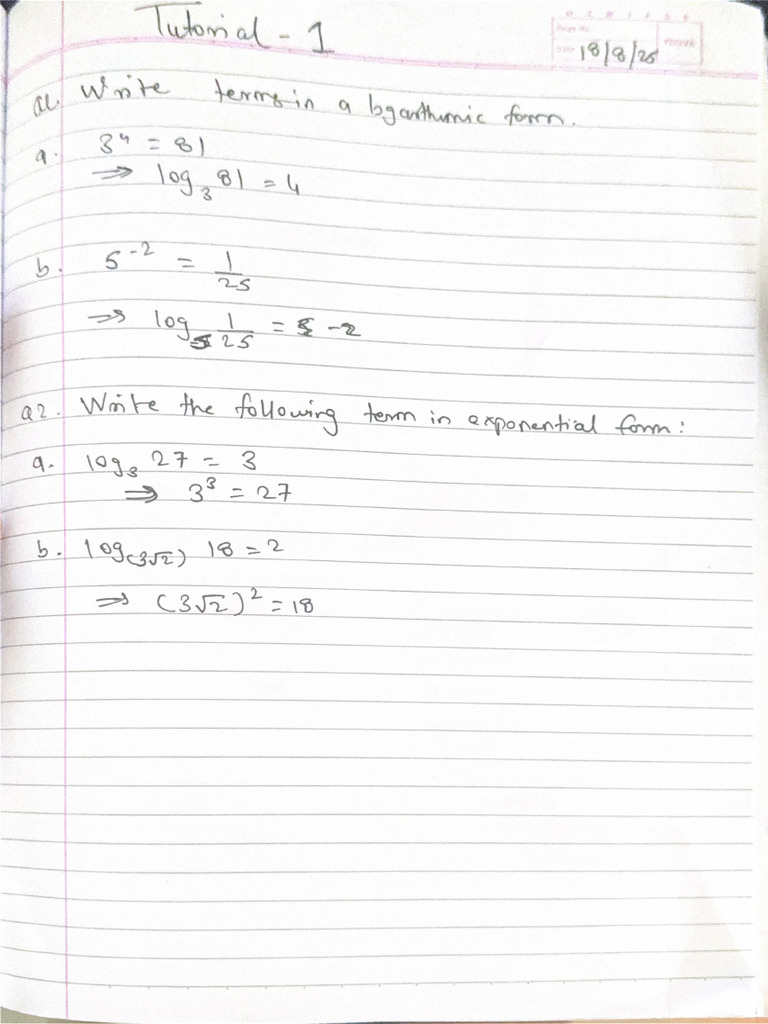 Tutorial - 1
Page No.
Date 18/8/25
YOUVA
Q1. Write terms in a logarithmic form.
a. 3⁴ = 81
⇒ log₃ 81 = 4
b. 5⁻² = 1/25
⇒ log₅ 1/25 = -2
Q2. Write the following term in exponential form:
a. log₃ 27 = 3
⇒ 3³ = 27
b. log(3√2) 18 = 2
⇒ (3√2)² = 18